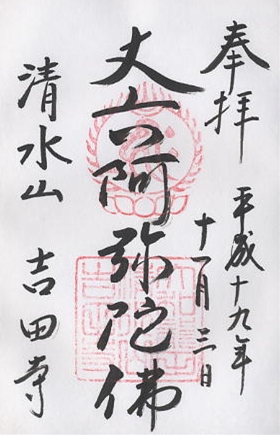 奉拝
平成十九年
十一月三日
丈六阿弥陀佛
清水山 吉田寺